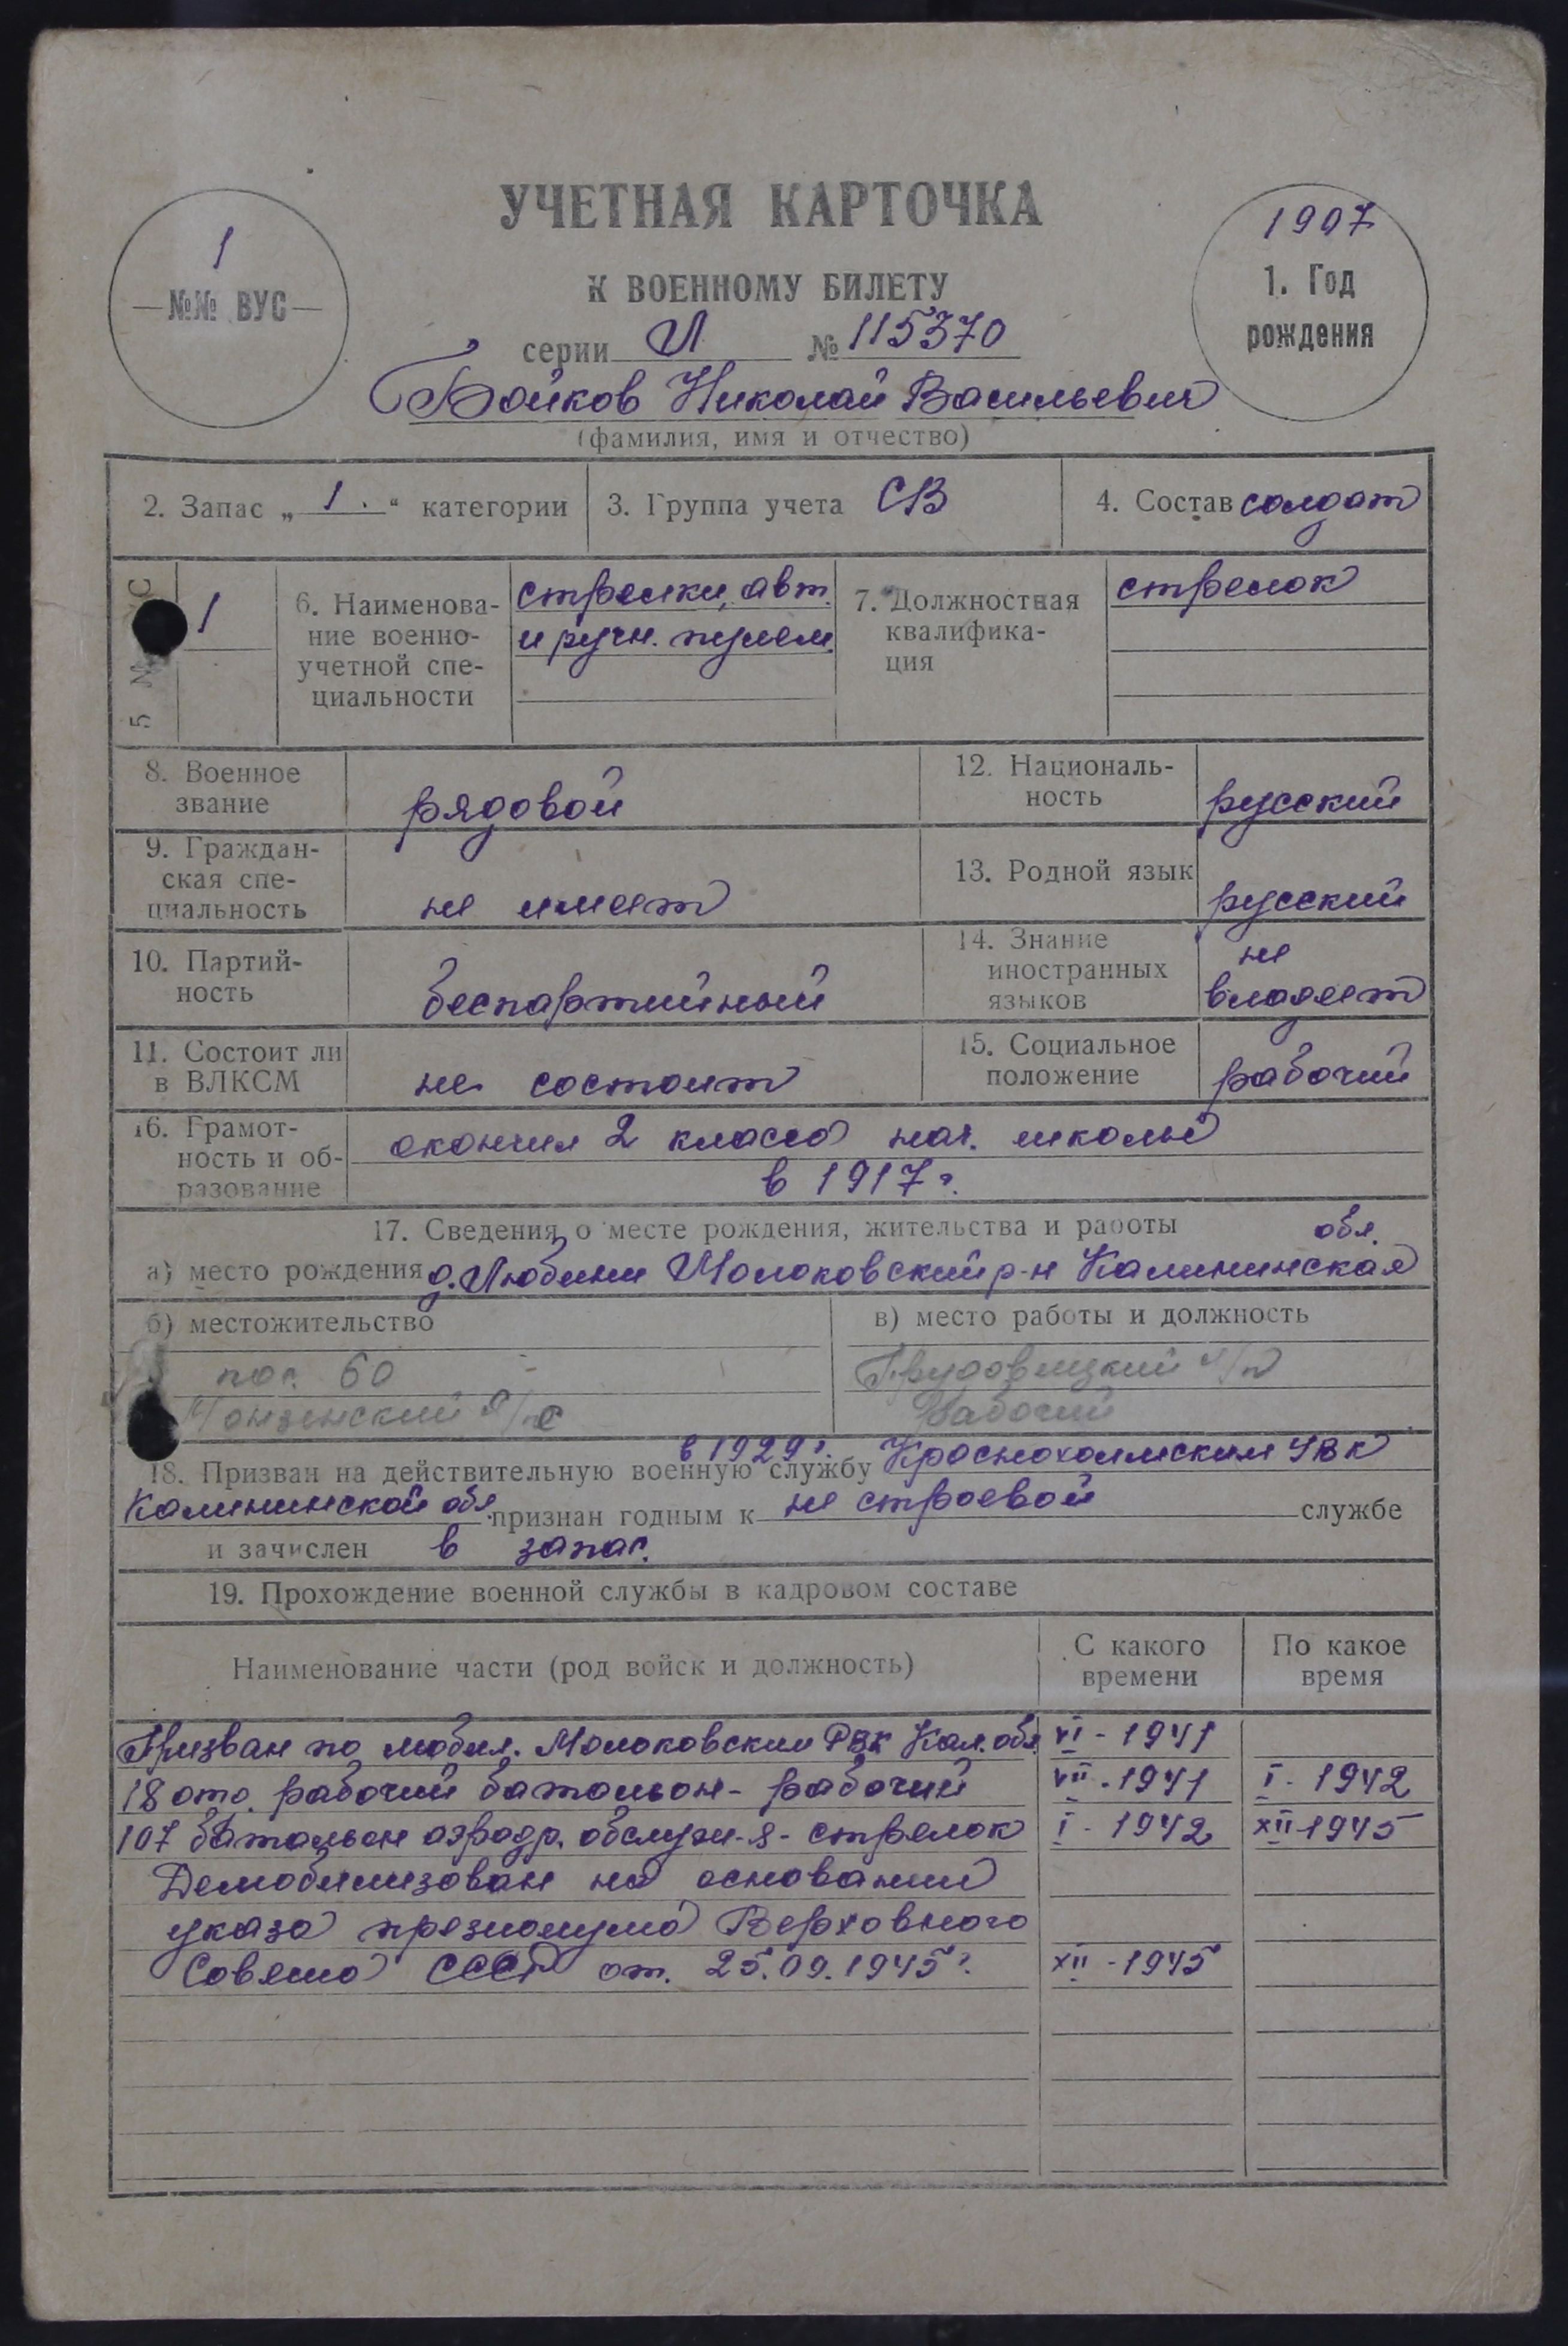 УЧЕТНАЯ КАРТОЧКА
К ВОЕННОМУ БИЛЕТУ
1
№№ ВУС
1907
1. Год
рождения
серии Л № 115370
Бойков Николай Васильевич
(фамилия, имя и отчество)
2. Запас „ 1. “ категории
3. Группа учета СВ
4. Состав солдат
5
1
6. Наименова-
ние военно-
учетной спе-
циальности
стрелки, авт.
и ручн. пулем.
7. Должностная
квалифика-
ция
стрелок
8. Военное
звание
рядовой
12. Националь-
ность
русский
9. Граждан-
ская спе-
циальность
не имеет
13. Родной язык
русский
10. Партий-
ность
беспартийный
14. Знание
иностранных
языков
не
владеет
11. Состоит ли
в ВЛКСМ
не состоит
15. Социальное
положение
рабочий
16. Грамот-
ность и об-
разование
окончил 2 класса нач. школы
в 1917 г.
17. Сведения о месте рождения, жительства и работы
обл.
а) место рождения д. Любини Молоковский р-н Калининская
б) местожительство
пос. 60
в) место работы и должность
Рабочий
в 1929 г.
18. Призван на действительную военную службу Краснохолмским УВК
Калининской обл. признан годным к не строевой службе
и зачислен в запас.
19. Прохождение военной службы в кадровом составе
Наименование части (род войск и должность)
С какого
времени
По какое
время
Призван по мобил. Молоковским РВК Кал. обл. VI - 1941
18 отд. рабочий батальон - рабочий VII - 1941 I - 1942
107 батальон аэродр. обслуж-я - стрелок I - 1942 XII - 1945
Демобилизован на основании
указа президиума Верховного
Совета СССР от 25.09.1945 г. XII - 1945